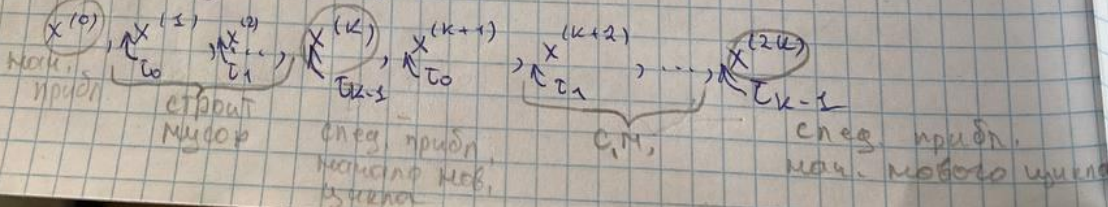 x^(0), x^(1), x^(2) ..., x^(k), x^(k+1), x^(k+2), ..., x^(2k)
τ_0 τ_1 τ_{k-1} τ_0 τ_1 τ_{k-1}
нач. прибл
строит мусор
след. прибл. начало нов. цикла
С.М,
след. прибл.
нач. нового цикла